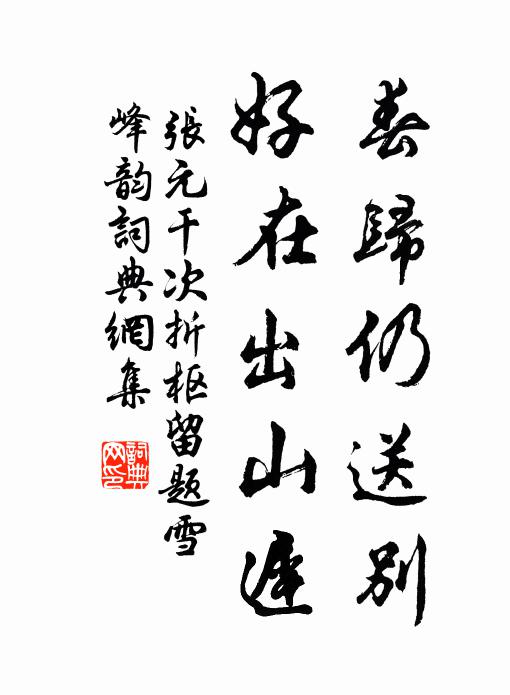 春歸仍送別
好在出山遲
張元干次折枢留题雪
峰韵詞典網集
詞典网印